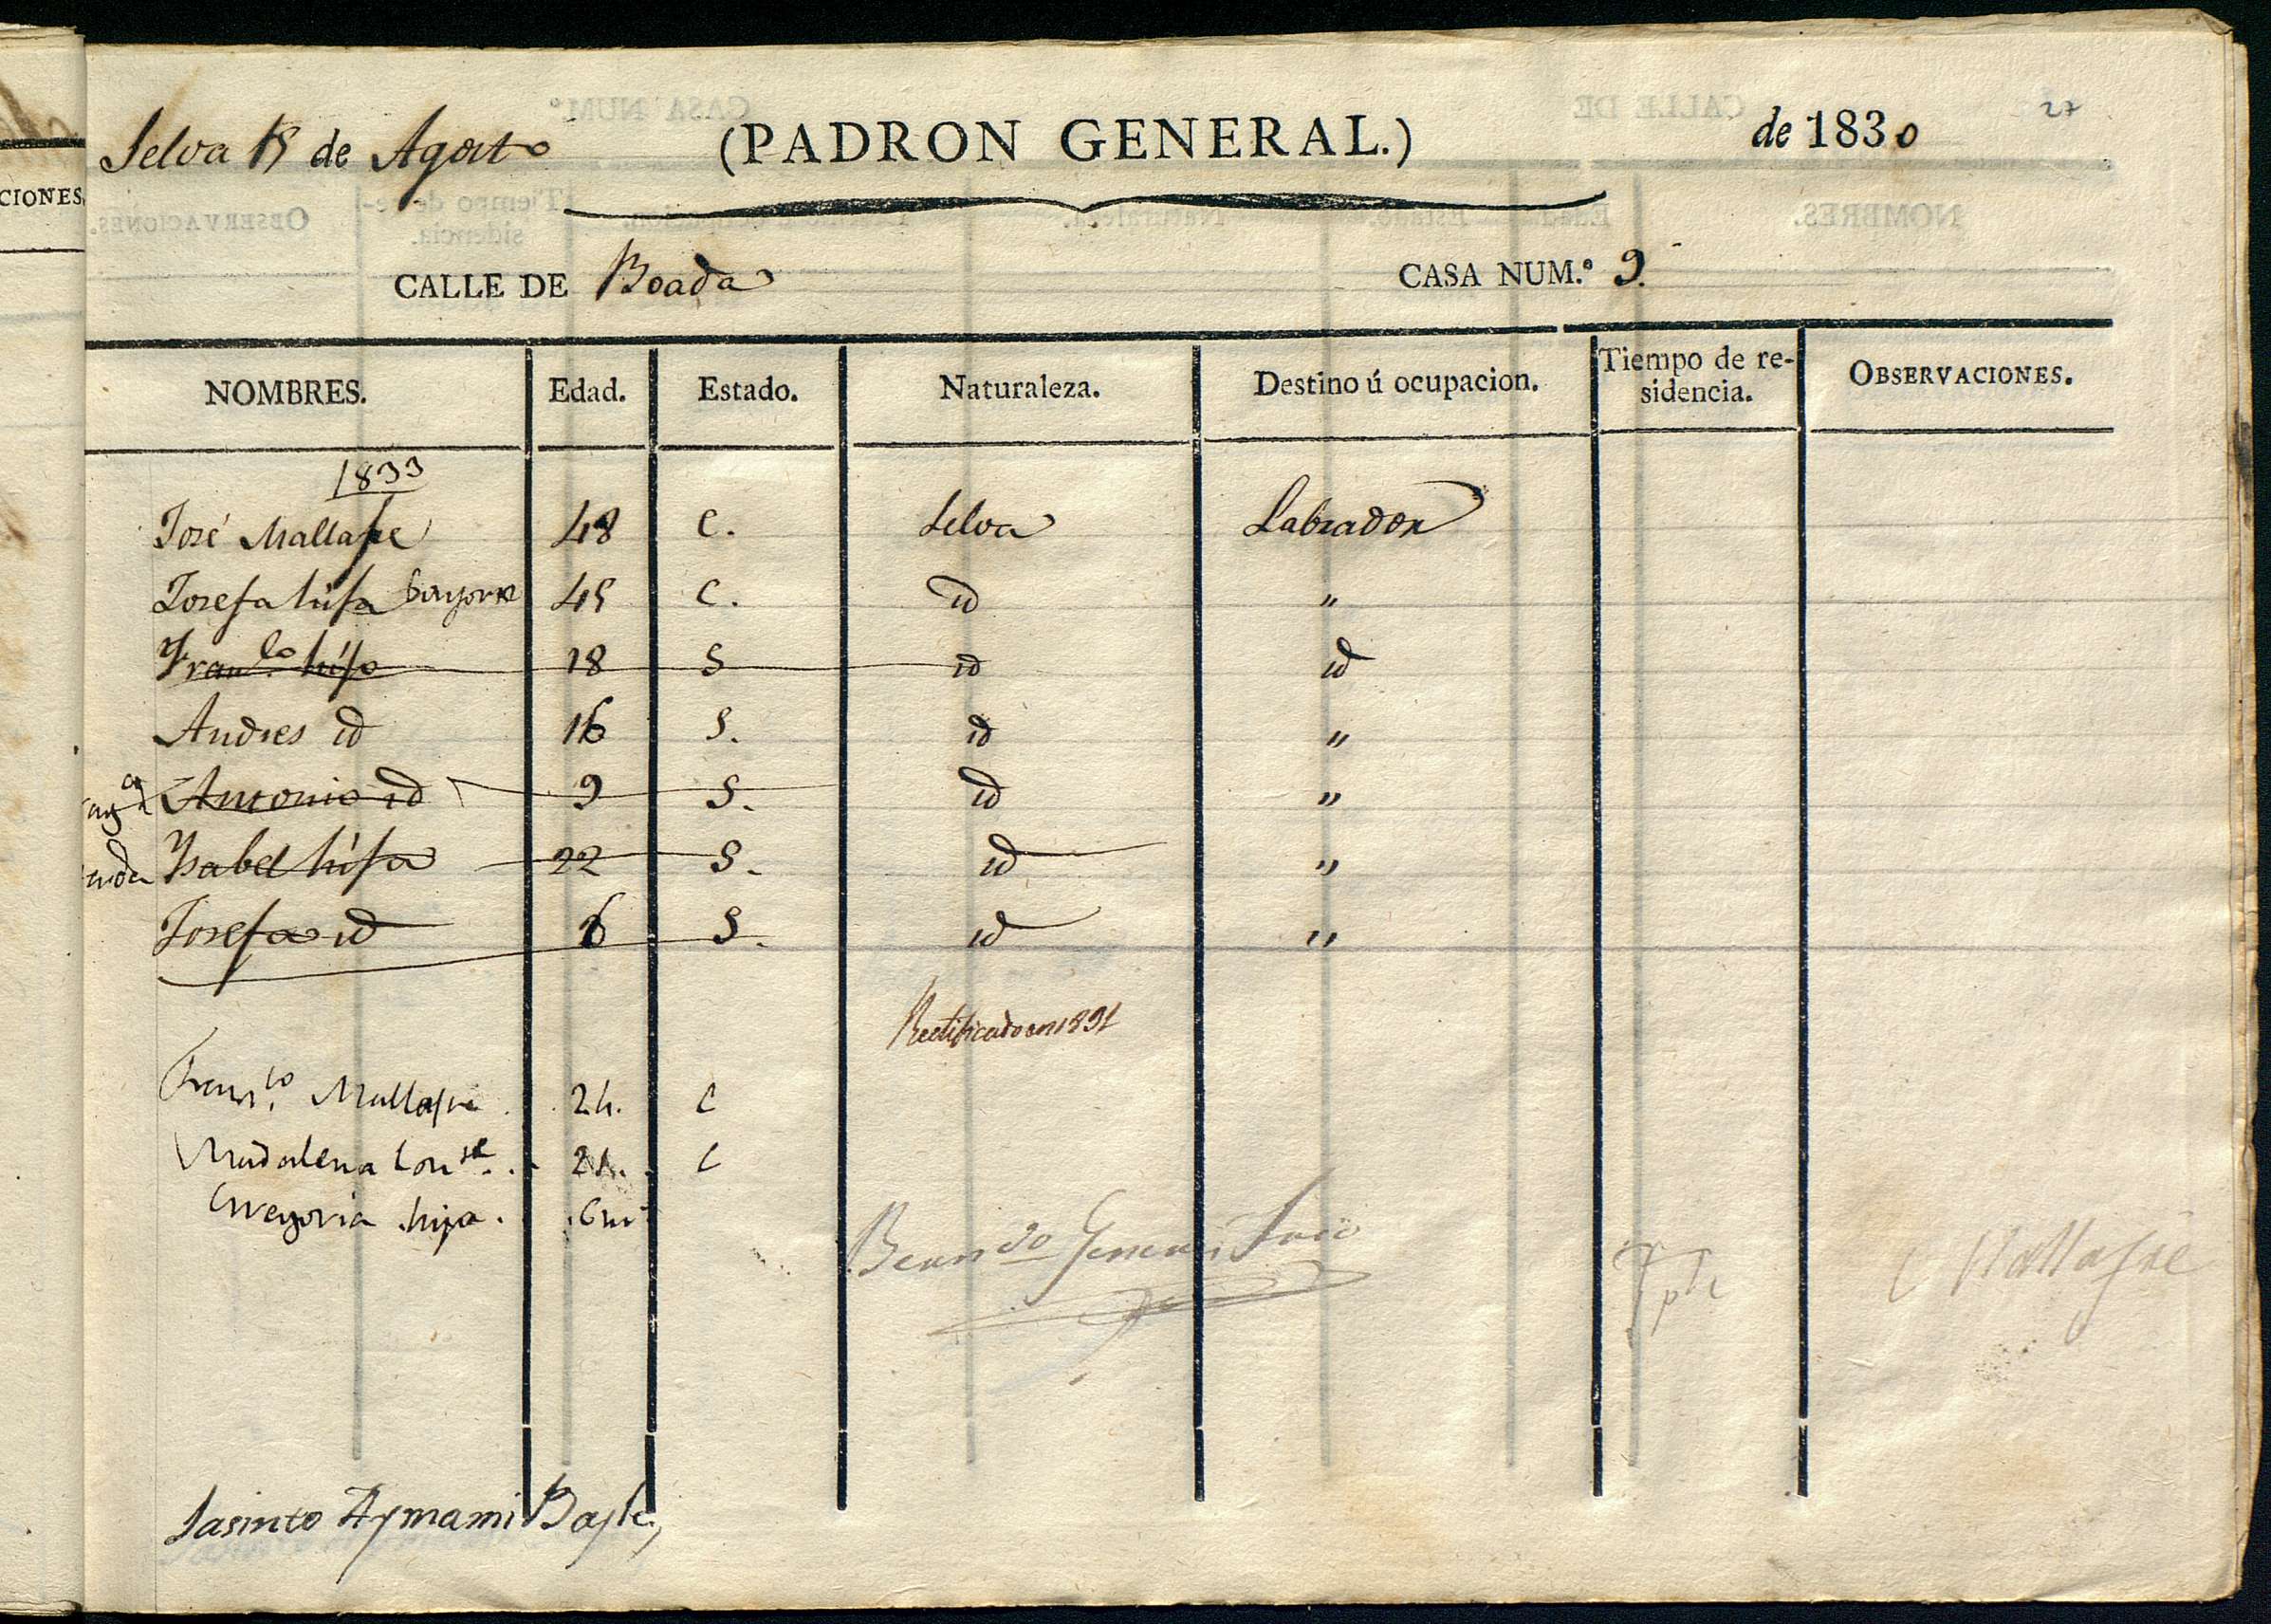 Selva 15 de Agosto (PADRON GENERAL.) de 1830
27
CIONES.
CALLE DE Boada CASA NUM.º 9.
NOMBRES. Edad. Estado. Naturaleza. Destino ú ocupacion. Tiempo de re-sidencia. OBSERVACIONES.
1833
José Mallafre 48 C. Selva Labrador
Josefa hija 45 C. id "
Fran.co hijo 18 S id id
Andres id 16 S. id "
Antonio id 9 S. id "
Ysabel hija 22 S. id "
Josefa id 6 S. id "
Rectificado en 1831
Fran.co Mallafre 24. C
Madalena Con.te C
Gregoria hija.
Mallafre
Jasinto Aymami Bayle